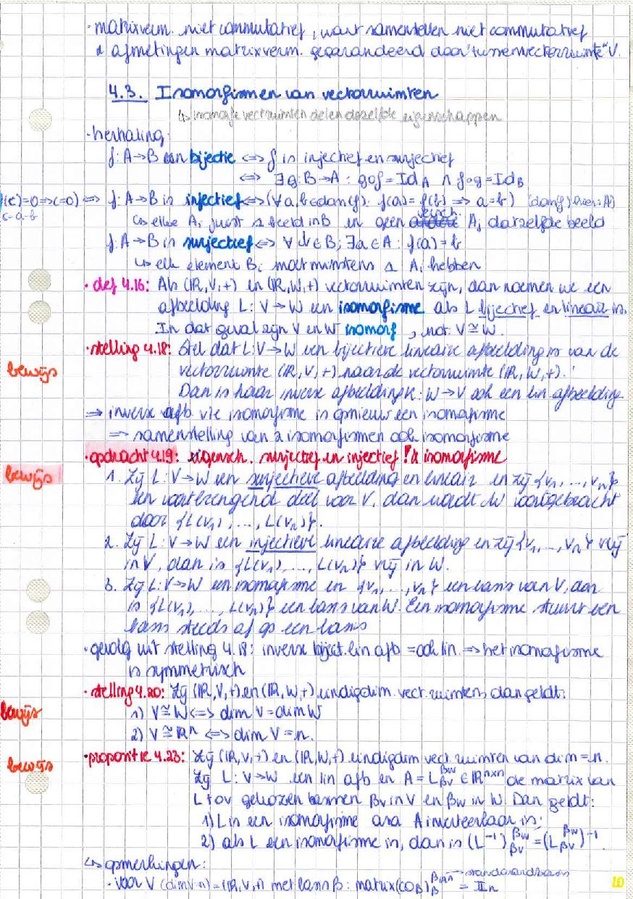 · matrixverm. niet commutatief, want samenstellen niet commutatief
& afmetingen matrixverm. gegarandeerd door "tussenvectorruimte" V.
4.3. Isomorfismen van vectorruimten
↳ isomorfe vectruimten delen dezelfde eigenschappen
· herhaling:
f: A→B een bijectie ⟺ f is injectief en surjectief
⟺ ∃g: B→A : g∘f = Id_A ∧ f∘g = Id_B
f: A→B is injectief ⟺ (∀a, b ∈ dom(f): f(a) = f(b) ⇒ a = b) (dom(f) hier = A)
↳ elke A, juist 1 beeld in B en geen versch. A, datzelfde beeld
f: A→B is surjectief ⟺ ∀b∈B; ∃a∈A : f(a) = b
↳ elk element B, moet minstens 1 A, hebben
· def 4.16: Als (ℝ,V,+) en (ℝ,W,+) vectorruimten zijn, dan noemen we een
afbeelding L: V→W een isomorfisme als L bijectief en lineair is.
In dat geval zijn V en W isomorf, not. V≅W.
· stelling 4.18: Stel dat L: V→W een bijectieve lineaire afbeelding is van de
bewijs
vectorruimte (ℝ,V,+) naar de vectorruimte (ℝ,W,+).
Dan is haar inverse afbeelding K: W→V ook een lin afbeelding.
⇒ inverse afb v/e isomorfisme is opnieuw een isomorfisme
⇒ samenstelling van 2 isomorfismen ook isomorfisme
· opdracht 4.19: eigensch. surjectief en injectief & isomorfisme
bewijs
1. Zij L: V→W een surjectieve afbeelding en lineair en zij {v₁, ..., vₙ}
een voortbrengend deel voor V, dan wordt W voortgebracht
door {L(v₁), ..., L(vₙ)}.
2. Zij L: V→W een injectieve lineaire afbeelding en zij {v₁, ..., vₙ} vrij
in V, dan is {L(v₁), ..., L(vₙ)} vrij in W.
3. Zij L: V→W een isomorfisme en {v₁, ..., vₙ} een basis van V, dan
is {L(v₁), ..., L(vₙ)} een basis van W. Een isomorfisme stuurt een
basis steeds af op een basis
· gevolg uit stelling 4.18: inverse biject. lin afb = ook lin. ⇒ het isomorfisme
is symmetrisch
· stelling 4.20: Zij (ℝ,V,+) en (ℝ,W,+) eindigdim. vect. ruimten, dan geldt:
bewijs
1) V≅W ⟺ dim V = dim W
2) V≅ℝⁿ ⟺ dim V = n.
· propositie 4.23: Zij (ℝ,V,+) en (ℝ,W,+) eindigdim vect ruimten van dim = n.
bewijs
Zij L: V→W een lin afb en A = L_βV^βW ∈ ℝⁿˣⁿ de matrix van
L tov gekozen basissen βV in V en βW in W. Dan geldt:
1) L is een isomorfisme asa A inverteerbaar is;
2) als L een isomorfisme is, dan is (L⁻¹)_βW^βV = (L_βV^βW)⁻¹.
↳ opmerkingen:
· voor V (dim V = n) = (ℝ,V,+) met basis β: matrix (co_β)_β = 𝕀n
standaardbasis
10